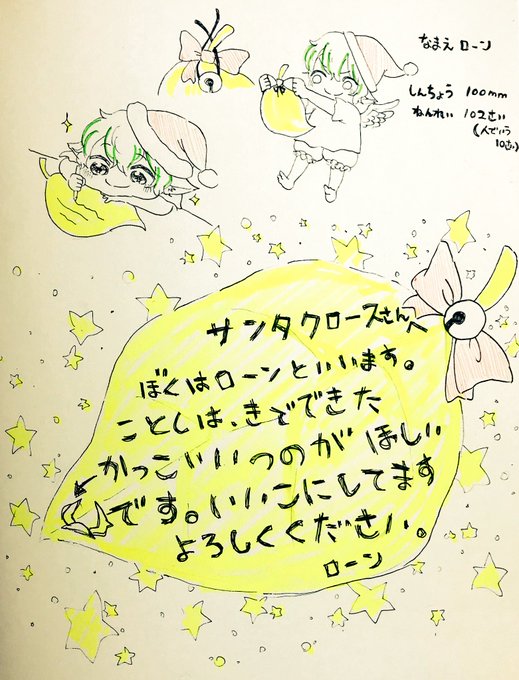 なまえ ローン
しんちょう 100mm
ねんれい 102さい
(人でいう
10さい)
サンタクロースさんへ
ぼくはローンといいます。
ことしは、きでできた
かっこいいつのが ほしい
です。いいこにしてます
よろしくください。
ローン